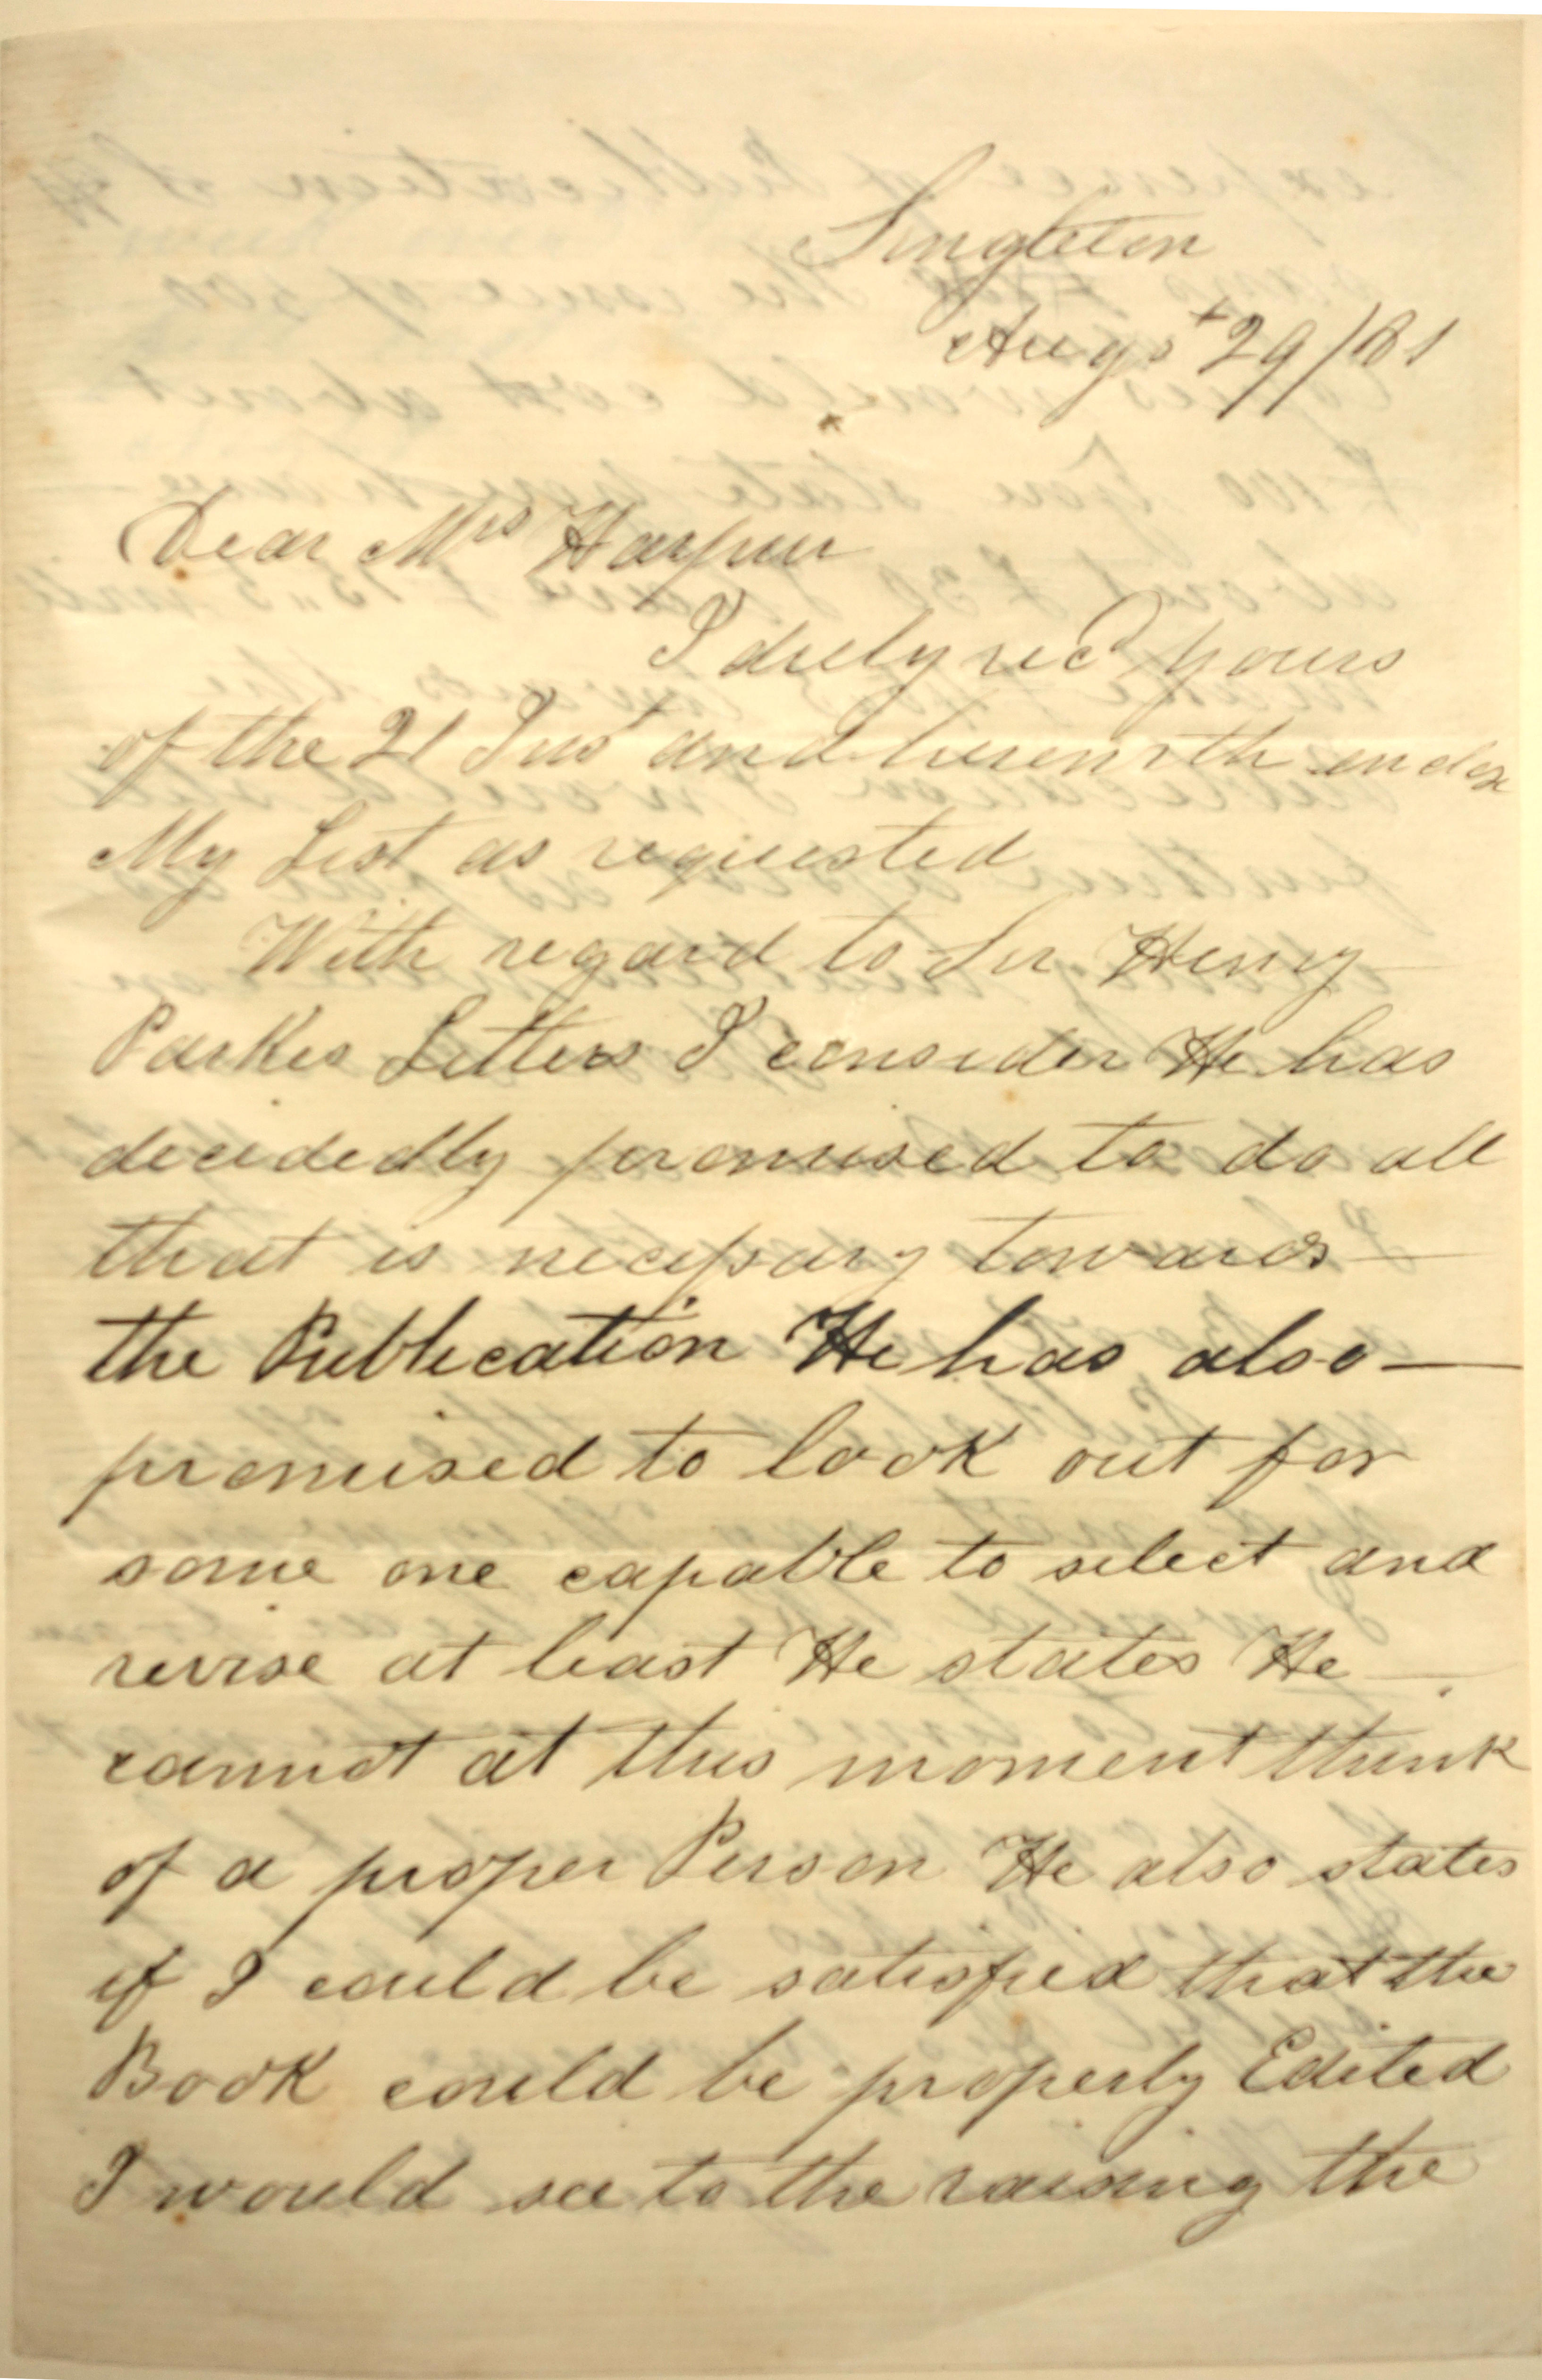 Singleton
Augst 29/81
Dear Mrs Harpur
I duly recd yours
of the 21 Inst and herewith enclose
My List as requested
With regard to Sir Henry
Parkes Letters I consider He has
decidedly promised to do all
that is necessary towards
the Publication He has also —
promised to look out for
some one capable to select and
revise at least He states He
cannot at this moment think
of a proper Person He also states
if I could be satisfied that the
Book could be properly Edited
I would see to the raising the